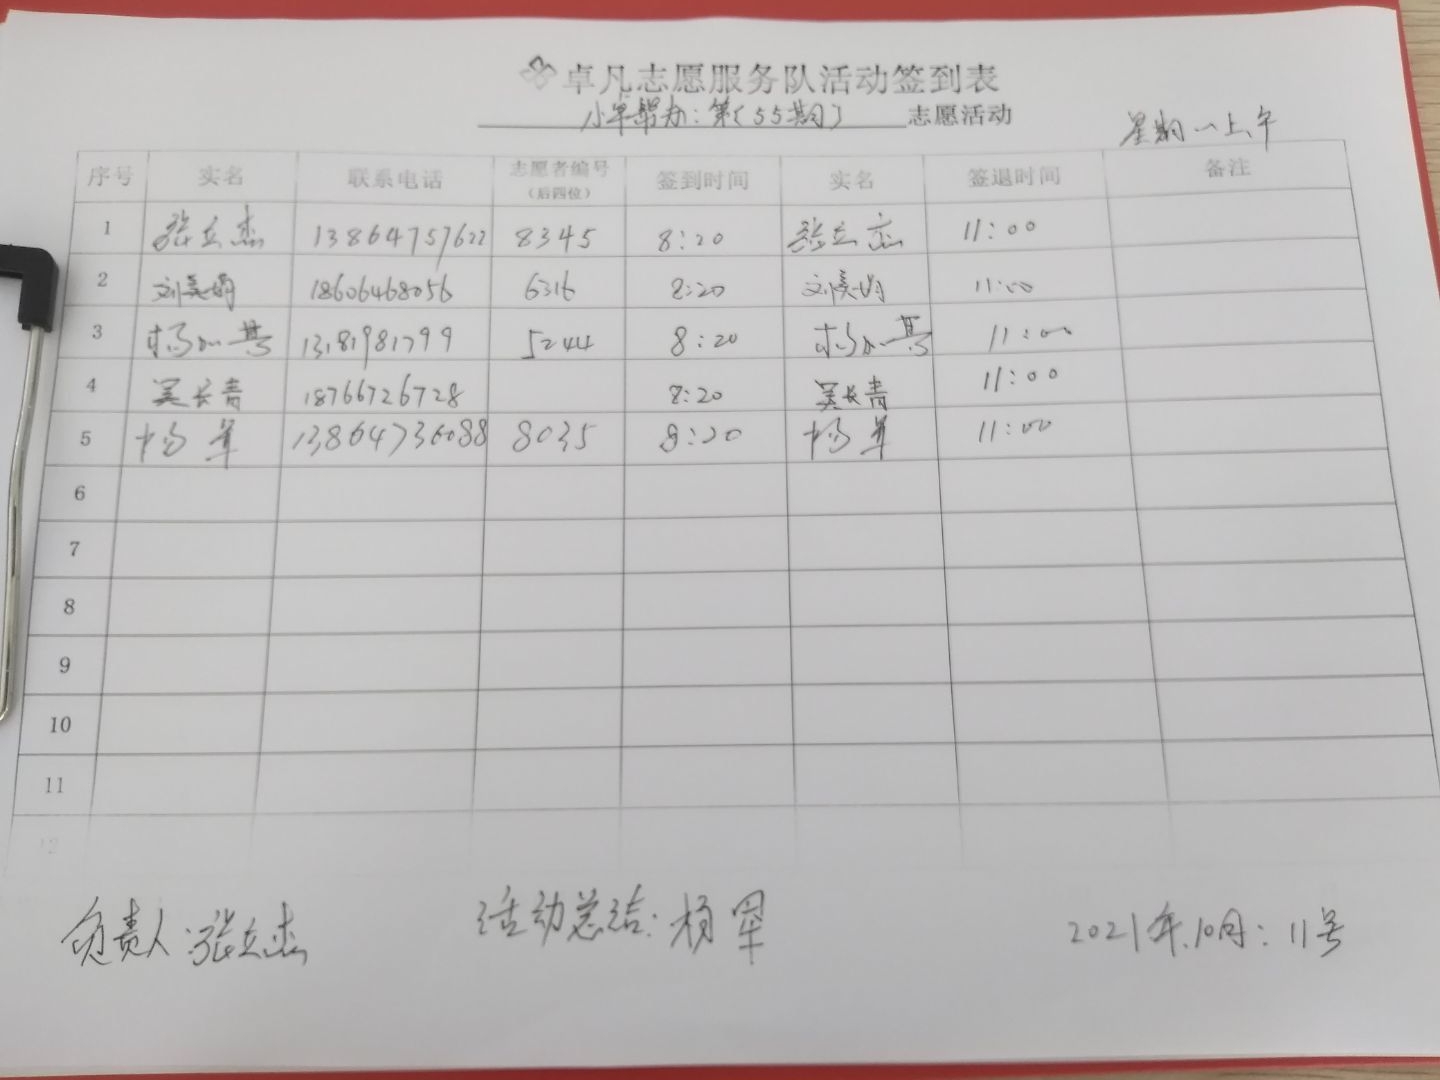 卓凡志愿服务队活动签到表
小卓帮办:第(55期) 志愿活动
星期一上午
序号 实名 联系电话 志愿者编号(后四位) 签到时间 实名 签退时间 备注
1 张立杰 13864757622 8345 8:20 张立杰 11:00
2 刘美娟 18606468056 6316 8:20 刘美娟 11:00
3 杨加基 13181981799 5244 8:20 杨加基 11:00
4 吴长青 18766726728 8:20 吴长青 11:00
5 杨军 13864736088 8035 8:20 杨军 11:00
6
7
8
9
10
11
12
负责人:张立杰 活动总结:杨军 2021年10月:11号